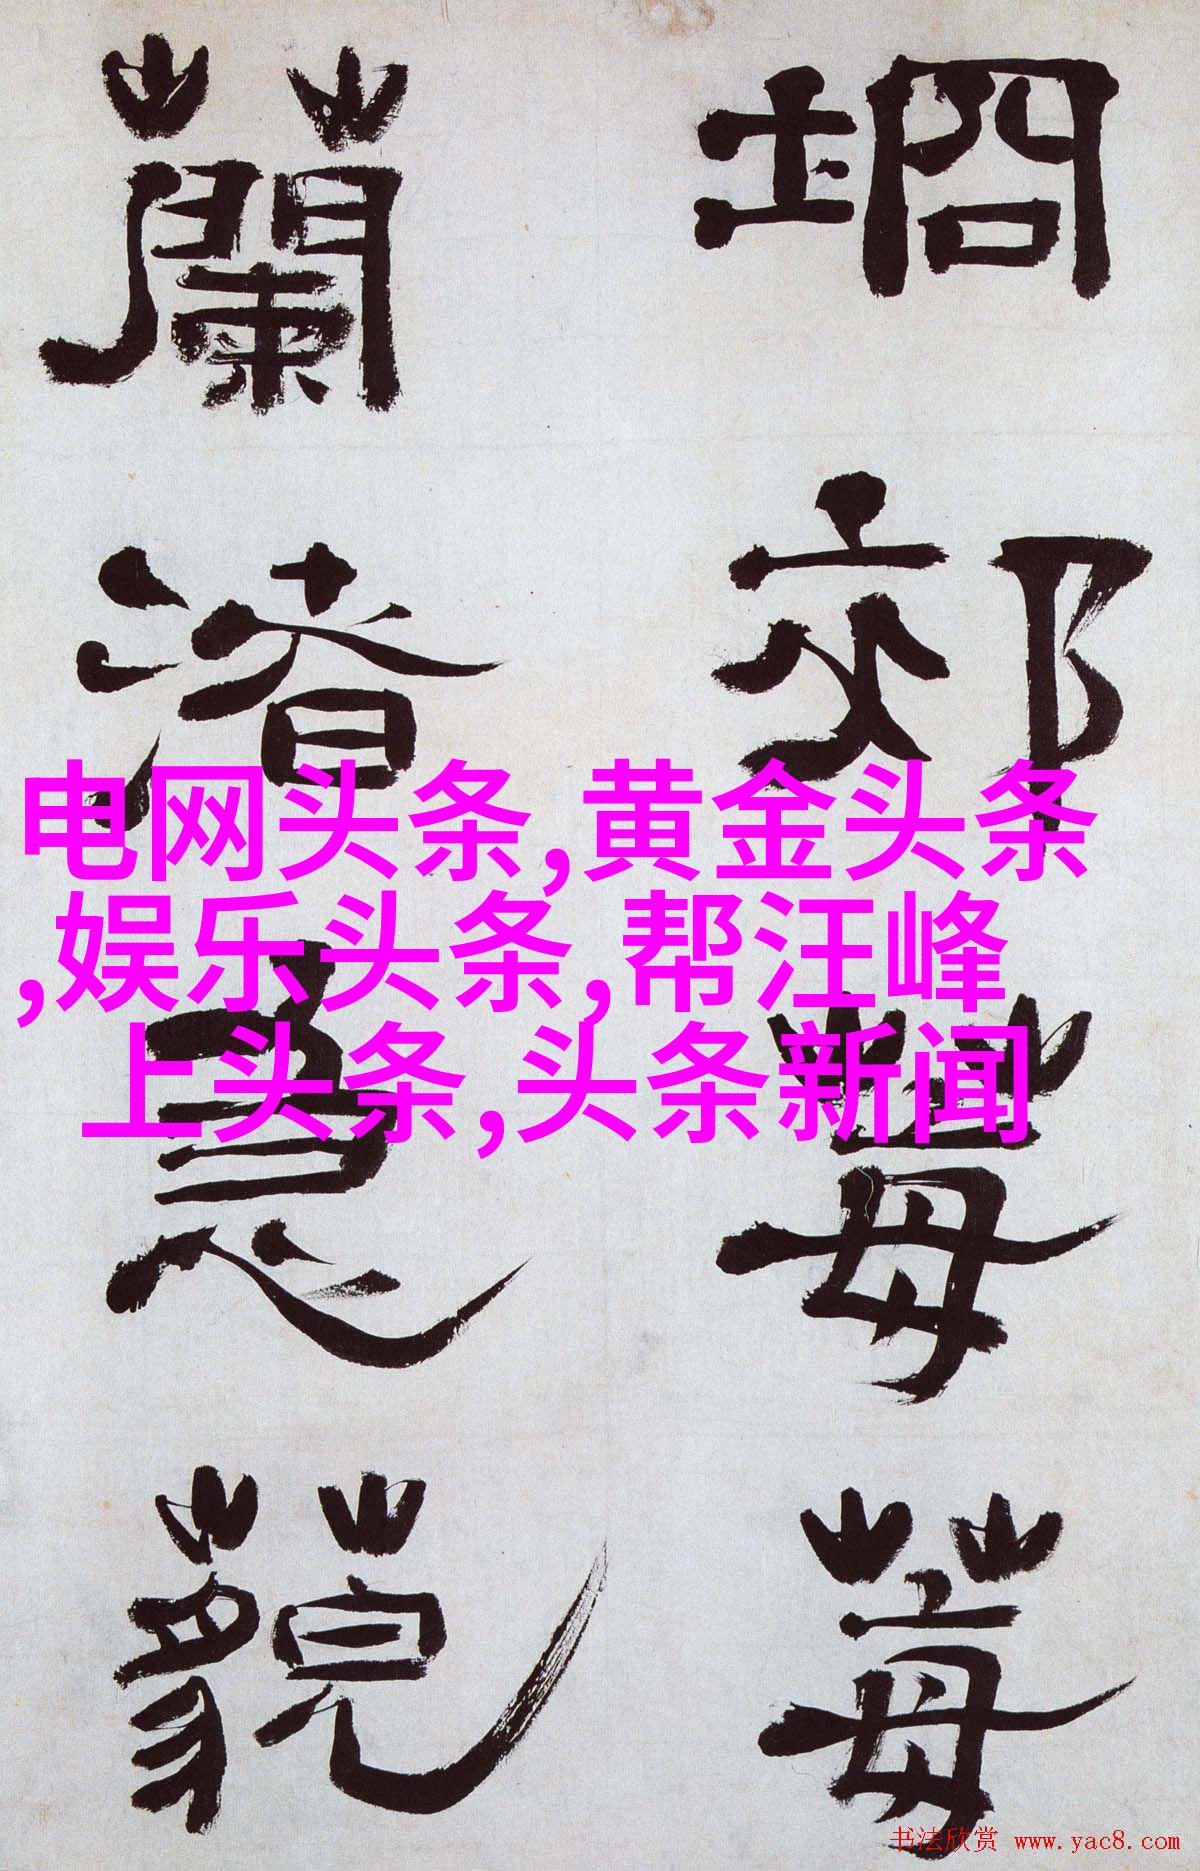 坰郊莓莓
蘭渚藐
电网头条,黄金头条
,娱乐头条,帮汪峰
上头条,头条新闻
书法欣赏 www.yac8.com